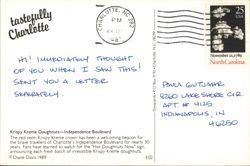 tastefully
Charlotte
CHARLOTTE, NC 282
PM
25
USA
November 21, 1789
North Carolina
HI! IMMEDIATELY THOUGHT
OF YOU WHEN I SAW THIS!
SENT YOU A LETTER
SEPERATELY.
PAULA GUTJAHR
8260 LAKE SHORE CIR.
APT. # 4125
INDIANAPOLIS, IN
46250
Krispy Kreme Doughnuts—Independence Boulevard
The red neon Krispy Kreme crown has been a welcoming beacon for
the brave travelers of Charlotte's Independence Boulevard for nearly 30
years. Fans have learned to watch for the "Hot Doughnuts Now" sign,
announcing each fresh batch of irresistible Krispy Kreme doughnuts.